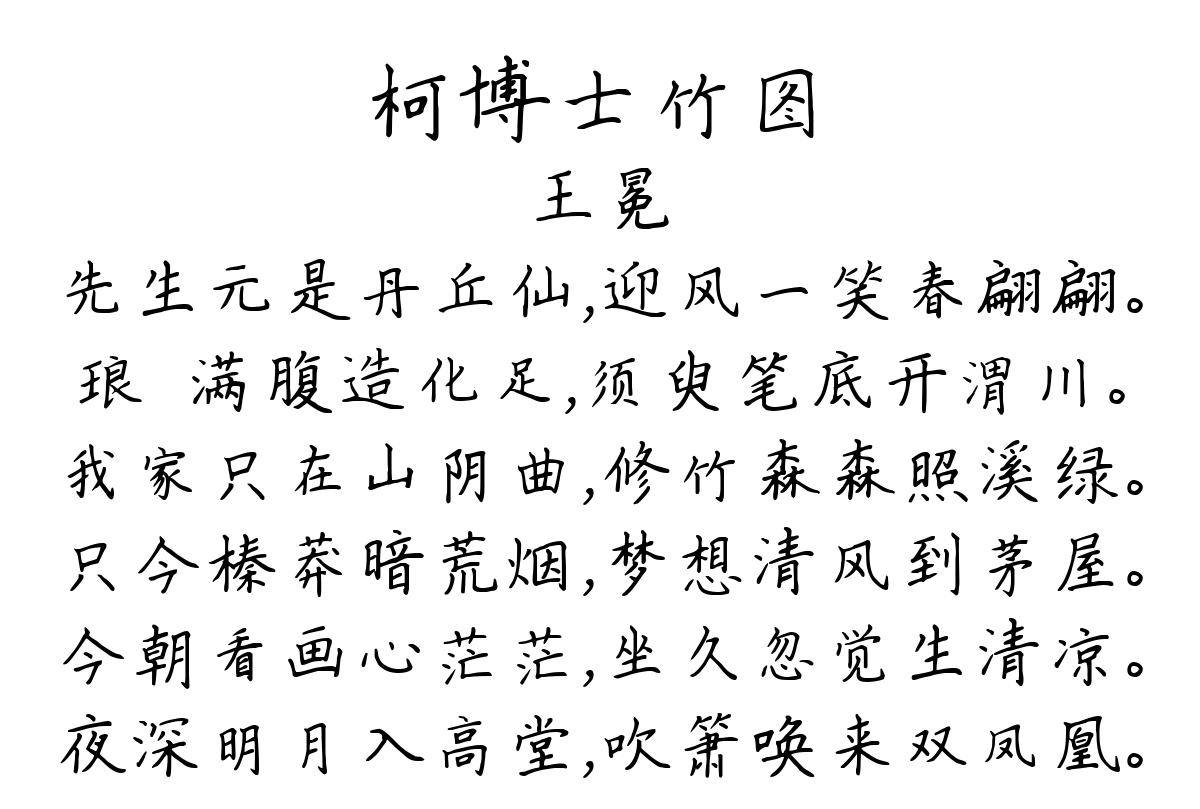 柯博士竹图
王冕
先生元是丹丘仙,迎风一笑春翩翩。
琅 满腹造化足,须臾笔底开渭川。
我家只在山阴曲,修竹森森照溪绿。
只今榛莽暗荒烟,梦想清风到茅屋。
今朝看画心茫茫,坐久忽觉生清凉。
夜深明月入高堂,吹箫唤来双凤凰。